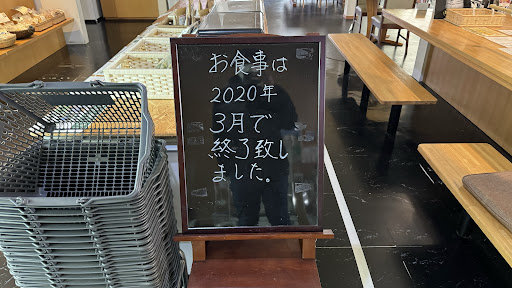 お食事は
2020年
3月で
終了致し
ました。